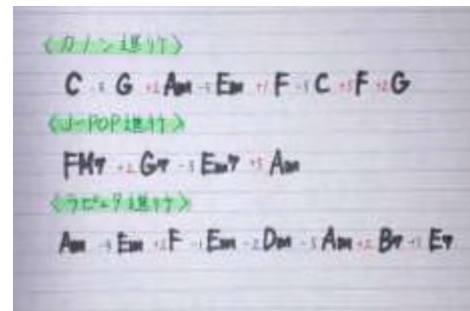 《カノン進行》
C -5 G +2 Am -5 Em +1 F -5 C +5 F +2 G
《J-POP進行》
FM7 +2 G7 -3 Em7 +5 Am
《ラピュタ進行》
Am -5 Em +1 F -1 Em -2 Dm -5 Am +2 B7 +5 E7